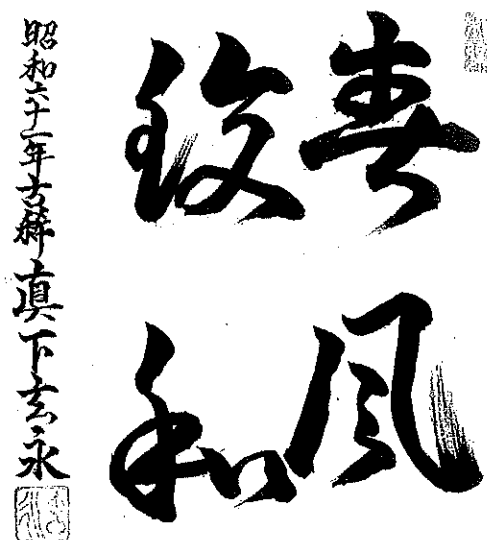 春風
致和
昭和六十一年古稀真下玄永